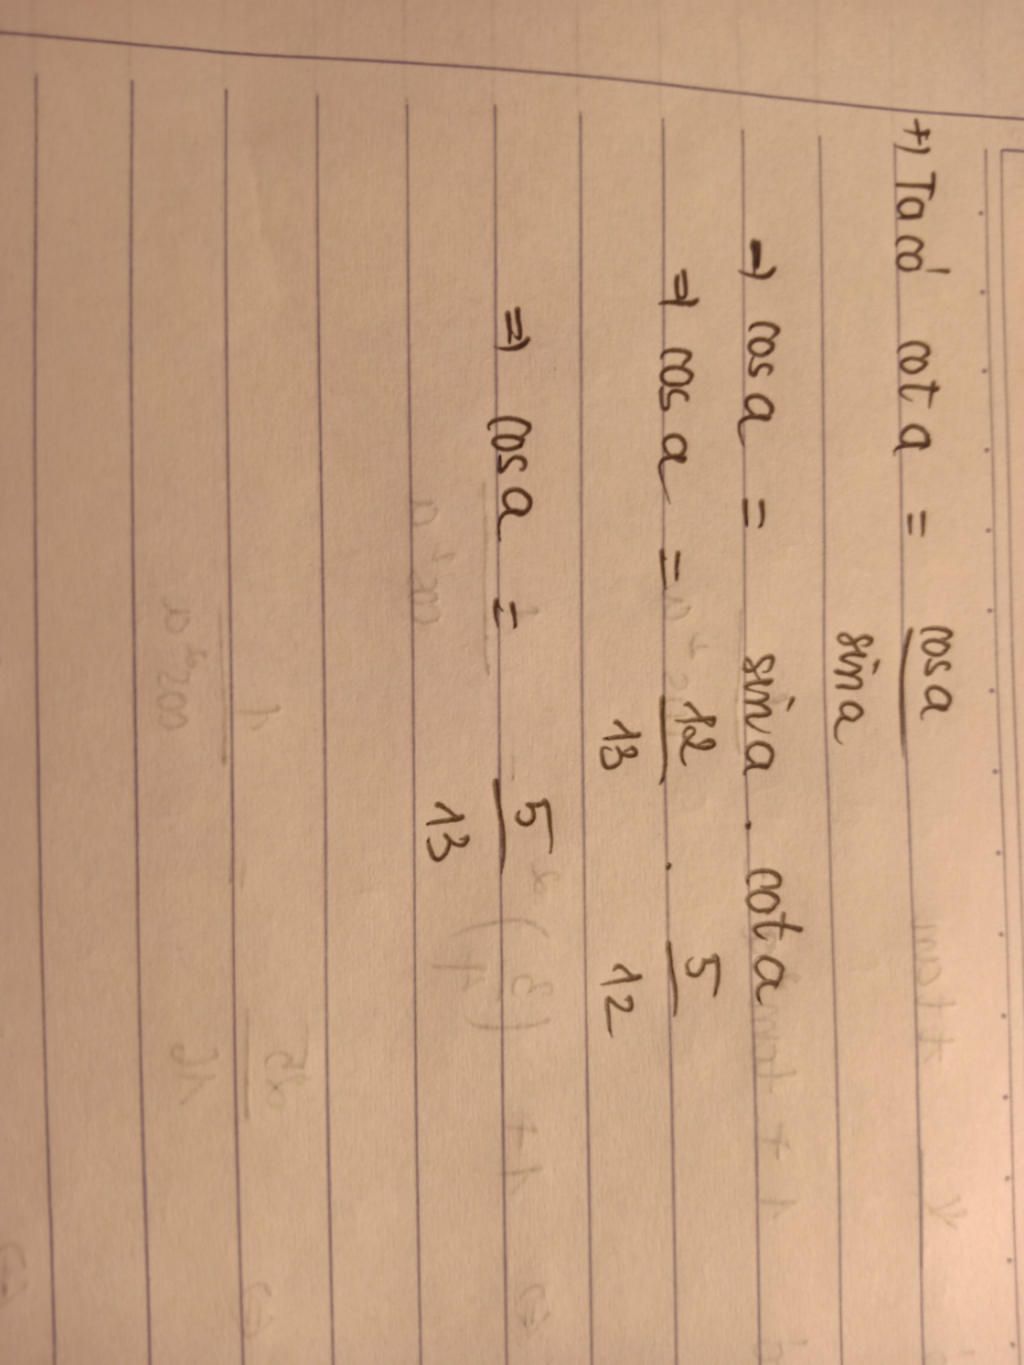 +) Ta có cot a = cos a / sin a
⇒ cos a = sin a . cot a
⇒ cos a = 12/13 . 5/12
⇒ cos a = 5/13